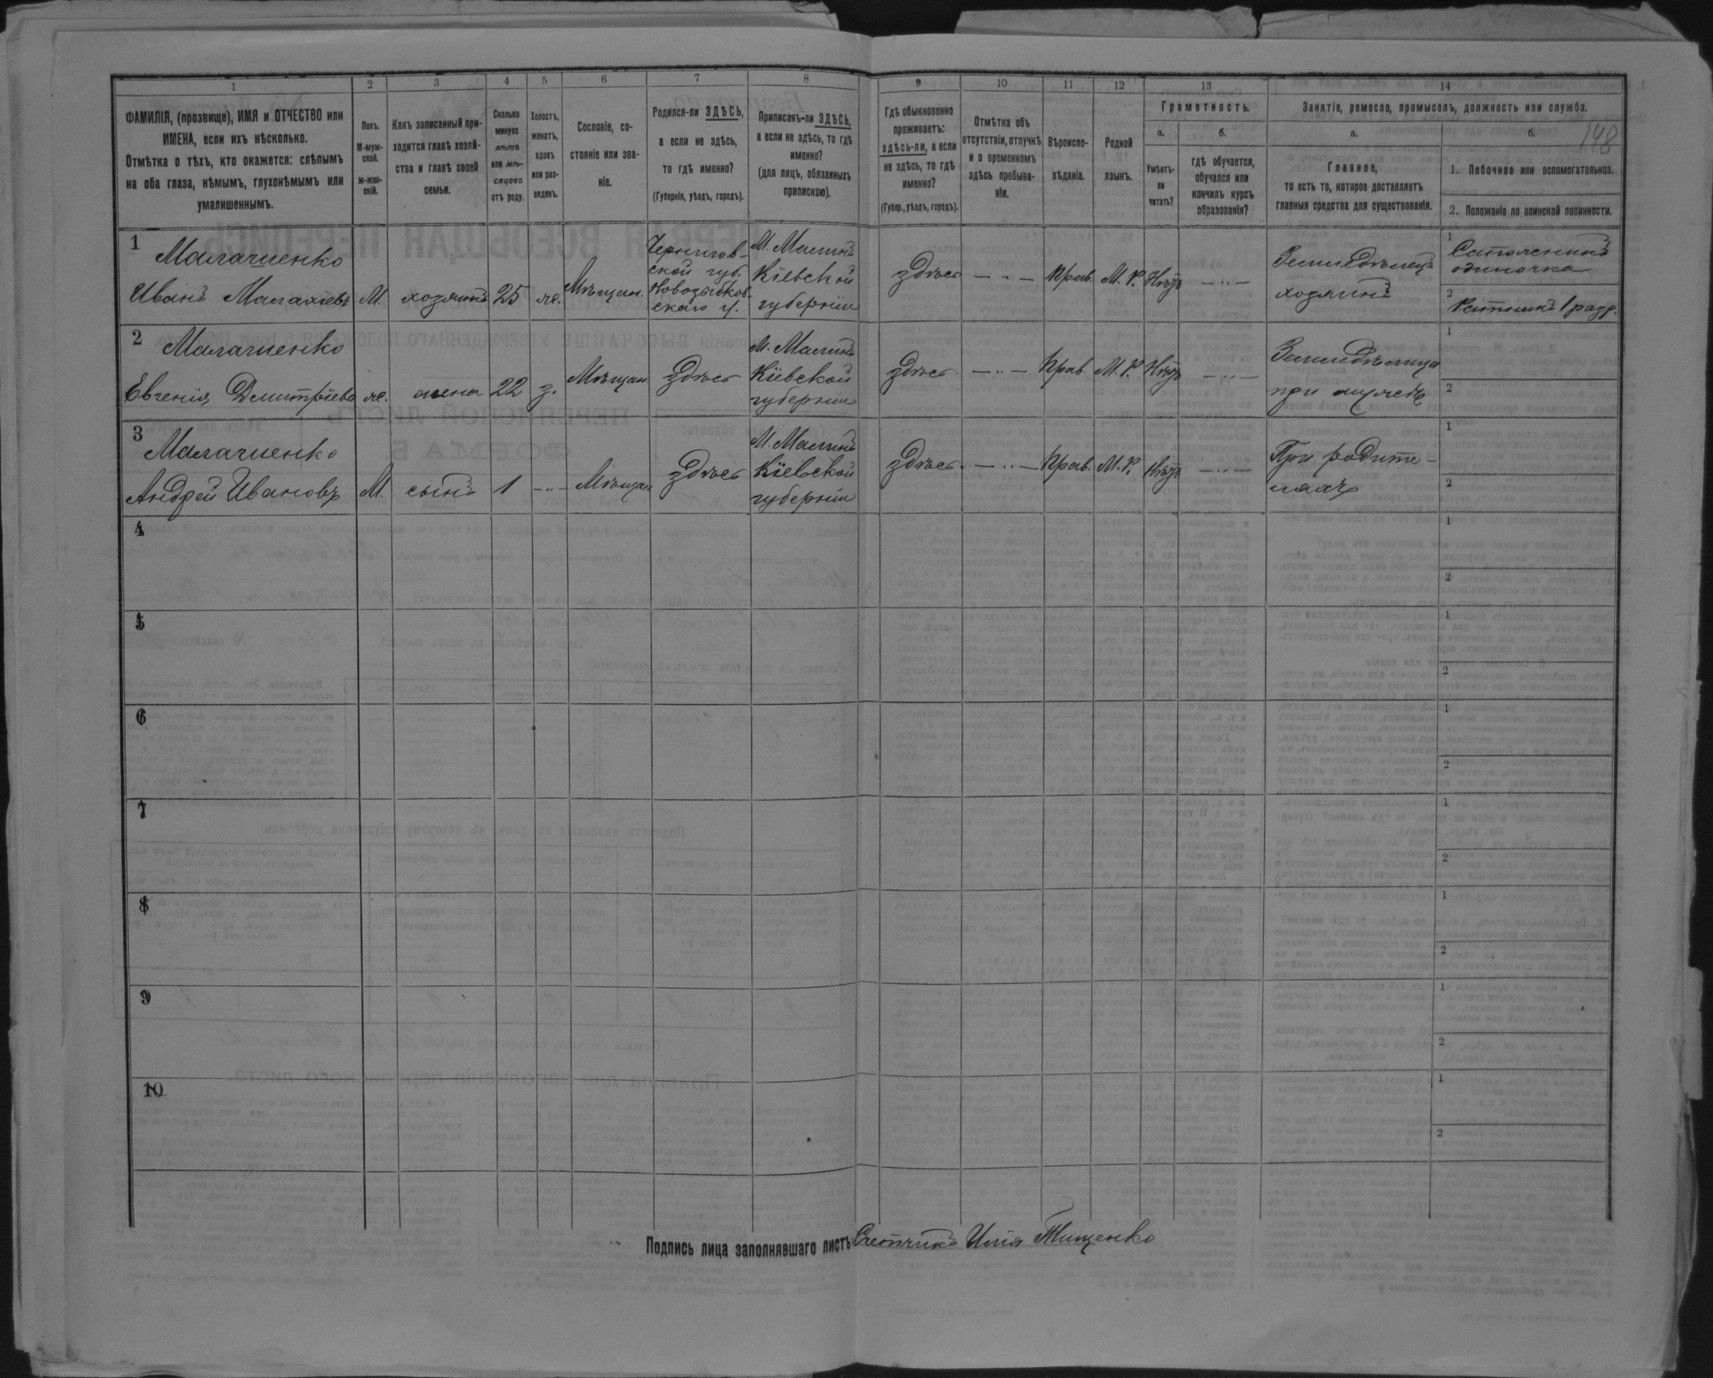 1
2
3
4
5
6
7
8
9
10
11
12
13
14
ФАМИЛІЯ, (прозвище), ИМЯ и ОТЧЕСТВО или
ИМЕНА, если ихъ нѣсколько.
Отмѣтка о тѣхъ, кто окажется: слѣпымъ
на оба глаза, нѣмымъ, глухонѣмымъ или
умалишеннымъ.
Полъ.
М-муж-
ской.
ж-жен-
скій.
Какъ записанный при-
ходится главѣ хозяй-
ства и главѣ своей
семьи.
Сколько
минуло
лѣтъ
или мѣ-
сяцевъ
отъ роду.
Холостъ,
женатъ,
вдовъ
или раз-
веденъ.
Сословіе, со-
стояніе или зва-
ніе.
Родился-ли ЗДѢСЬ,
а если не здѣсь,
то гдѣ именно?
(Губернія, уѣздъ, городъ).
Приписанъ-ли ЗДѢСЬ,
а если не здѣсь, то гдѣ
именно?
(для лицъ, обязанныхъ
припискою).
Гдѣ обыкновенно
проживаетъ:
здѣсь-ли, а если
не здѣсь, то гдѣ
именно?
(Губер., уѣздъ, городъ).
Отмѣтка объ
отсутствіи, отлучкѣ
и о временномъ
здѣсь пребыва-
ніи.
Вѣроиспо-
вѣданіе.
Родной
языкъ.
Грамотность.
а.
б.
Умѣетъ-
ли
читать?
гдѣ обучается,
обучался или
кончилъ курсъ
образованія?
Занятіе, ремесло, промыселъ, должность или служба.
а.
б.
148
Главное,
то есть то, которое доставляетъ
главныя средства для существованія.
1. Побочное или вспомогательное.
2. Положеніе по воинской повинности.
1
Малашенко
Иванъ Малахіевъ
М.
хозяинъ
25
ж.
Мѣщан.
Чернигов-
ской губ.
Новозыбков-
скаго у.
М. Малинъ
Кіевской
губерніи
здѣсь
— „ —
Прав.
М. Р.
Нѣтъ
— „ —
Земледѣлецъ
хозяинъ
1
одиночка
2
Ратникъ 1 разр.
2
Малашенко
Евгенія Дмитріева
ж.
жена
22
з.
Мѣщан.
Здѣсь
М. Малинъ
Кіевской
губерніи
здѣсь
— „ —
Прав.
М. Р.
Нѣтъ
— „ —
Земледѣлица
при мужѣ
1
2
3
Малашенко
Андрей Ивановъ
М.
сынъ
1
— „ —
Мѣщан.
Здѣсь
М. Малинъ
Кіевской
губерніи
здѣсь
— „ —
Прав.
М. Р.
Нѣтъ
— „ —
При родите-
ляхъ
1
2
4
1
2
5
1
2
6
1
2
7
1
2
8
1
2
9
1
2
10
1
2
Подпись лица заполнявшаго листъ Счетчикъ Илія Тищенко